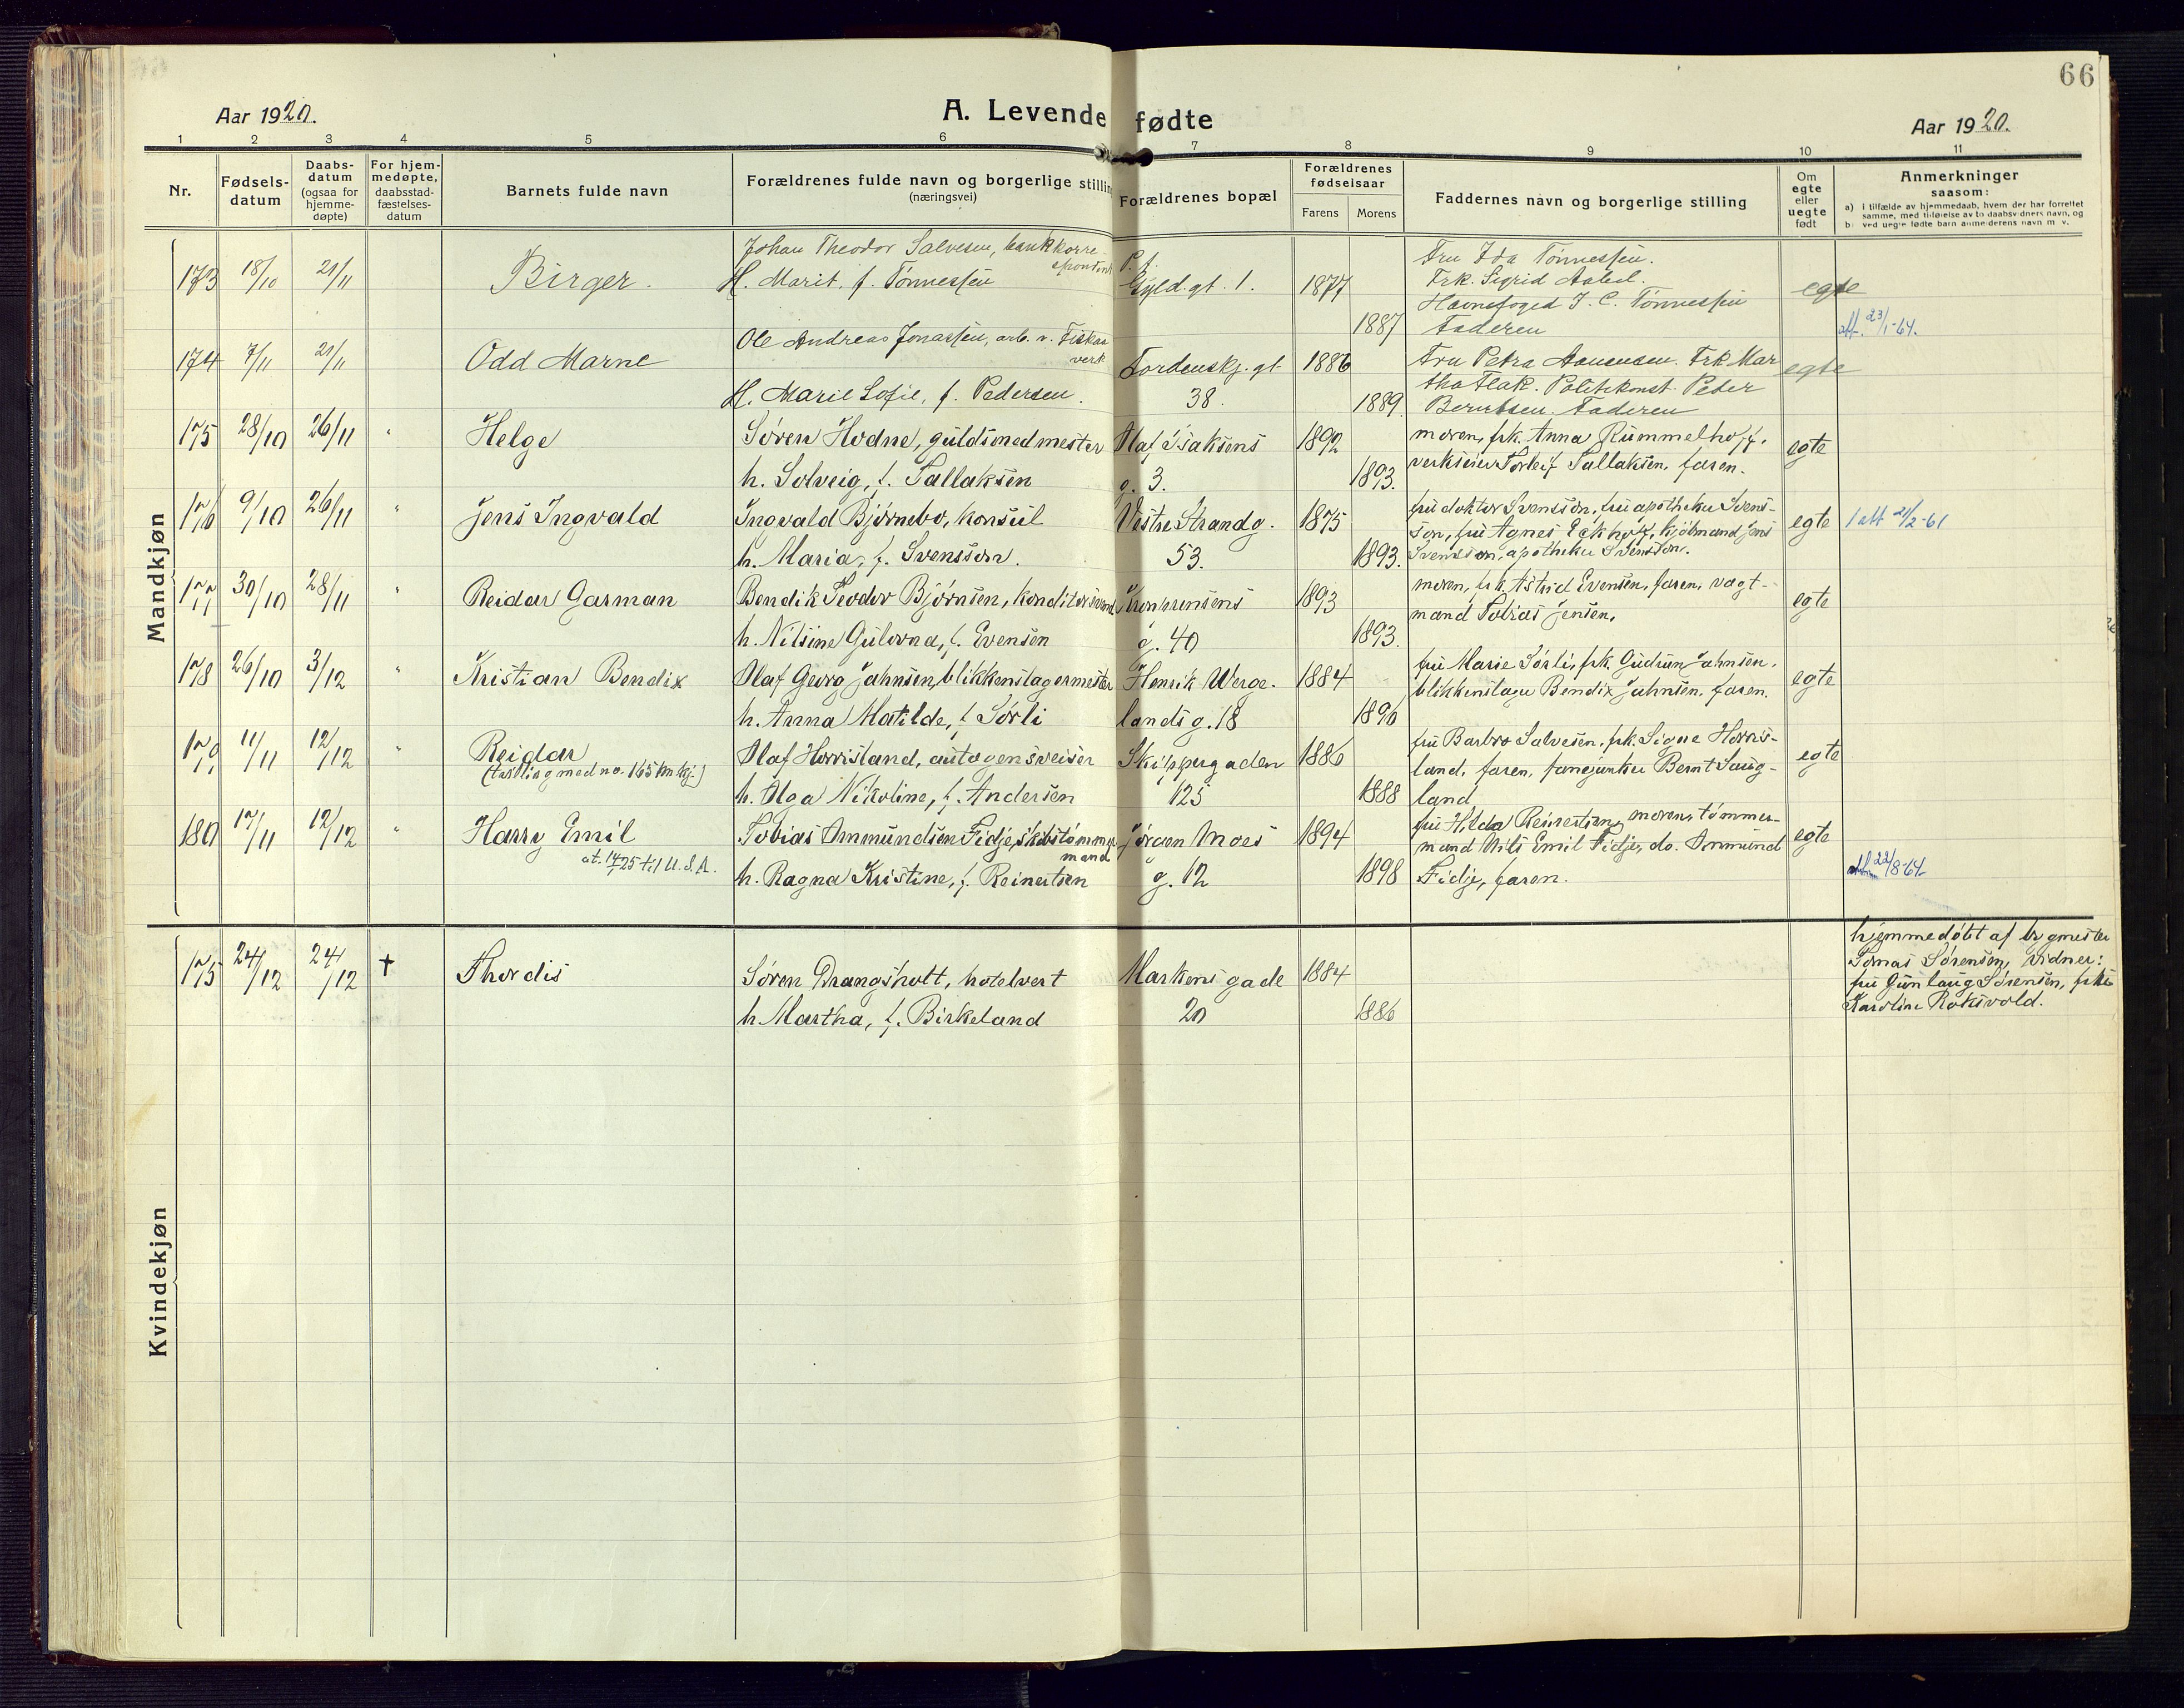 66
Aar 1920.
A. Levende fødte
Aar 1920.
1 2 3 4 5 6 7 8 9 10 11
Nr.
Fødsels-
datum
Daabs-
datum
(ogsaa for
hjemme-
døpte)
For hjem-
medøpte,
daabsstad-
fæstelses-
datum
Barnets fulde navn
Forældrenes fulde navn og borgerlige stilling
(næringsvei)
Forældrenes bopæl
Forældrenes
fødselsaar
Farens Morens
Faddernes navn og borgerlige stilling
Om
egte
eller
uegte
født
Anmerkninger
saasom:
a) i tilfælde av hjemmedaab, hvem der har forrettet
samme, med tilføielse av to daabsvidners navn, og
b) ved uegte fødte barn anmelderens navn m. v.
Mandkjøn
173 18/10 21/11 Birger.
Johan Theodor Salvesen, bankkorre-
spondent
H. Marit, f. Tønnessen
Gyld. gt. 1.
1877
1887
Fru Ida Tønnessen.
Frk. Sigrid Aabel.
Havnefoged J. C. Tønnessen
Faderen
egte
att. 23/1-64.
174 7/11 21/11 Odd Marne
Ole Andreas Jonassen, arb. v. Fiskaa
verk
H. Marie Sofie, f. Pedersen.
Tordenskj. gt.
38.
1886
1889.
Fru Petra Aanensen. Frk Mar
tha Flak. Politikonst. Peder
Berntsen. Faderen
egte
175 28/10 26/11 " Helge
Søren Hodne, guldsmedmester
h. Solveig, f. Tallaksen
Olaf Isaksens
g. 3.
1892
1893.
moren, frk. Anna Rummelhoff,
verkseier Torleif Tallaksen, faren.
egte
176 9/10 26/11 " Jens Ingvald
Ingvald Bjørnebo, konsul
h. Maria, f. Svensson.
Vestre Strandg.
53.
1875
1893.
fru doktor Svensson, fru apotheker Svens-
son, fru Agnes Eckhoff, kjøbmand Jens
Svensson, apotheker Svensson.
egte
1 att 21/2-61
177 30/10 28/11 " Reidar Garman
Bendik Teodor Bjørnsen, konditorsvend
h. Nilsine Gulovna, f. Evensen
Kronprinsens
g. 40
1893
1893.
moren, frk. Astrid Evensen, faren, vagt-
mand Tobias Jensen.
egte
178 26/10 3/12 " Kristian Bendix
Olaf Georg Jahnsen, blikkenslagermester
h. Anna Matilde, f. Sørli
Henrik Werge-
lands g. 18
1884
1896
fru Marie Sørli, frk. Gudrun Jahnsen,
blikkenslager Bendix Jahnsen, faren.
egte
179 11/11 12/12 " Reidar
(tvilling med no. 165 kvkj.)
Olaf Horrisland, autogensveiser
h. Olga Nikoline, f. Andersen
Skippergaden
125
1886
1888
fru Barbro Salvesen, frk. Signe Horris-
land, faren, fanejunker Bernt Saug-
land
egte
180 17/11 12/12 " Harry Emil
at. 14/7 25 til U.S.A.
Tobias Ammundsen Fidje, skibstømmer
mand
h. Ragna Kristine, f. Reinertsen
Jørgen Moes
g. 12
1894
1898
fru Hilda Reinertsen, moren, tømmer-
mand Nils Emil Fidje, do. Ammund
Fidje, faren.
egte
att. 22/8-64
Kvindekjøn
175 24/12 24/12 † Thordis
Søren Drangsholt, hotelvert
h. Martha, f. Birkeland
Markens gade
20
1884
1886
hjemmedøbt af bygmester
Tomas Sørensen, vidner:
fru Gunlaug Sørensen, frk.
Karoline Roksvold.